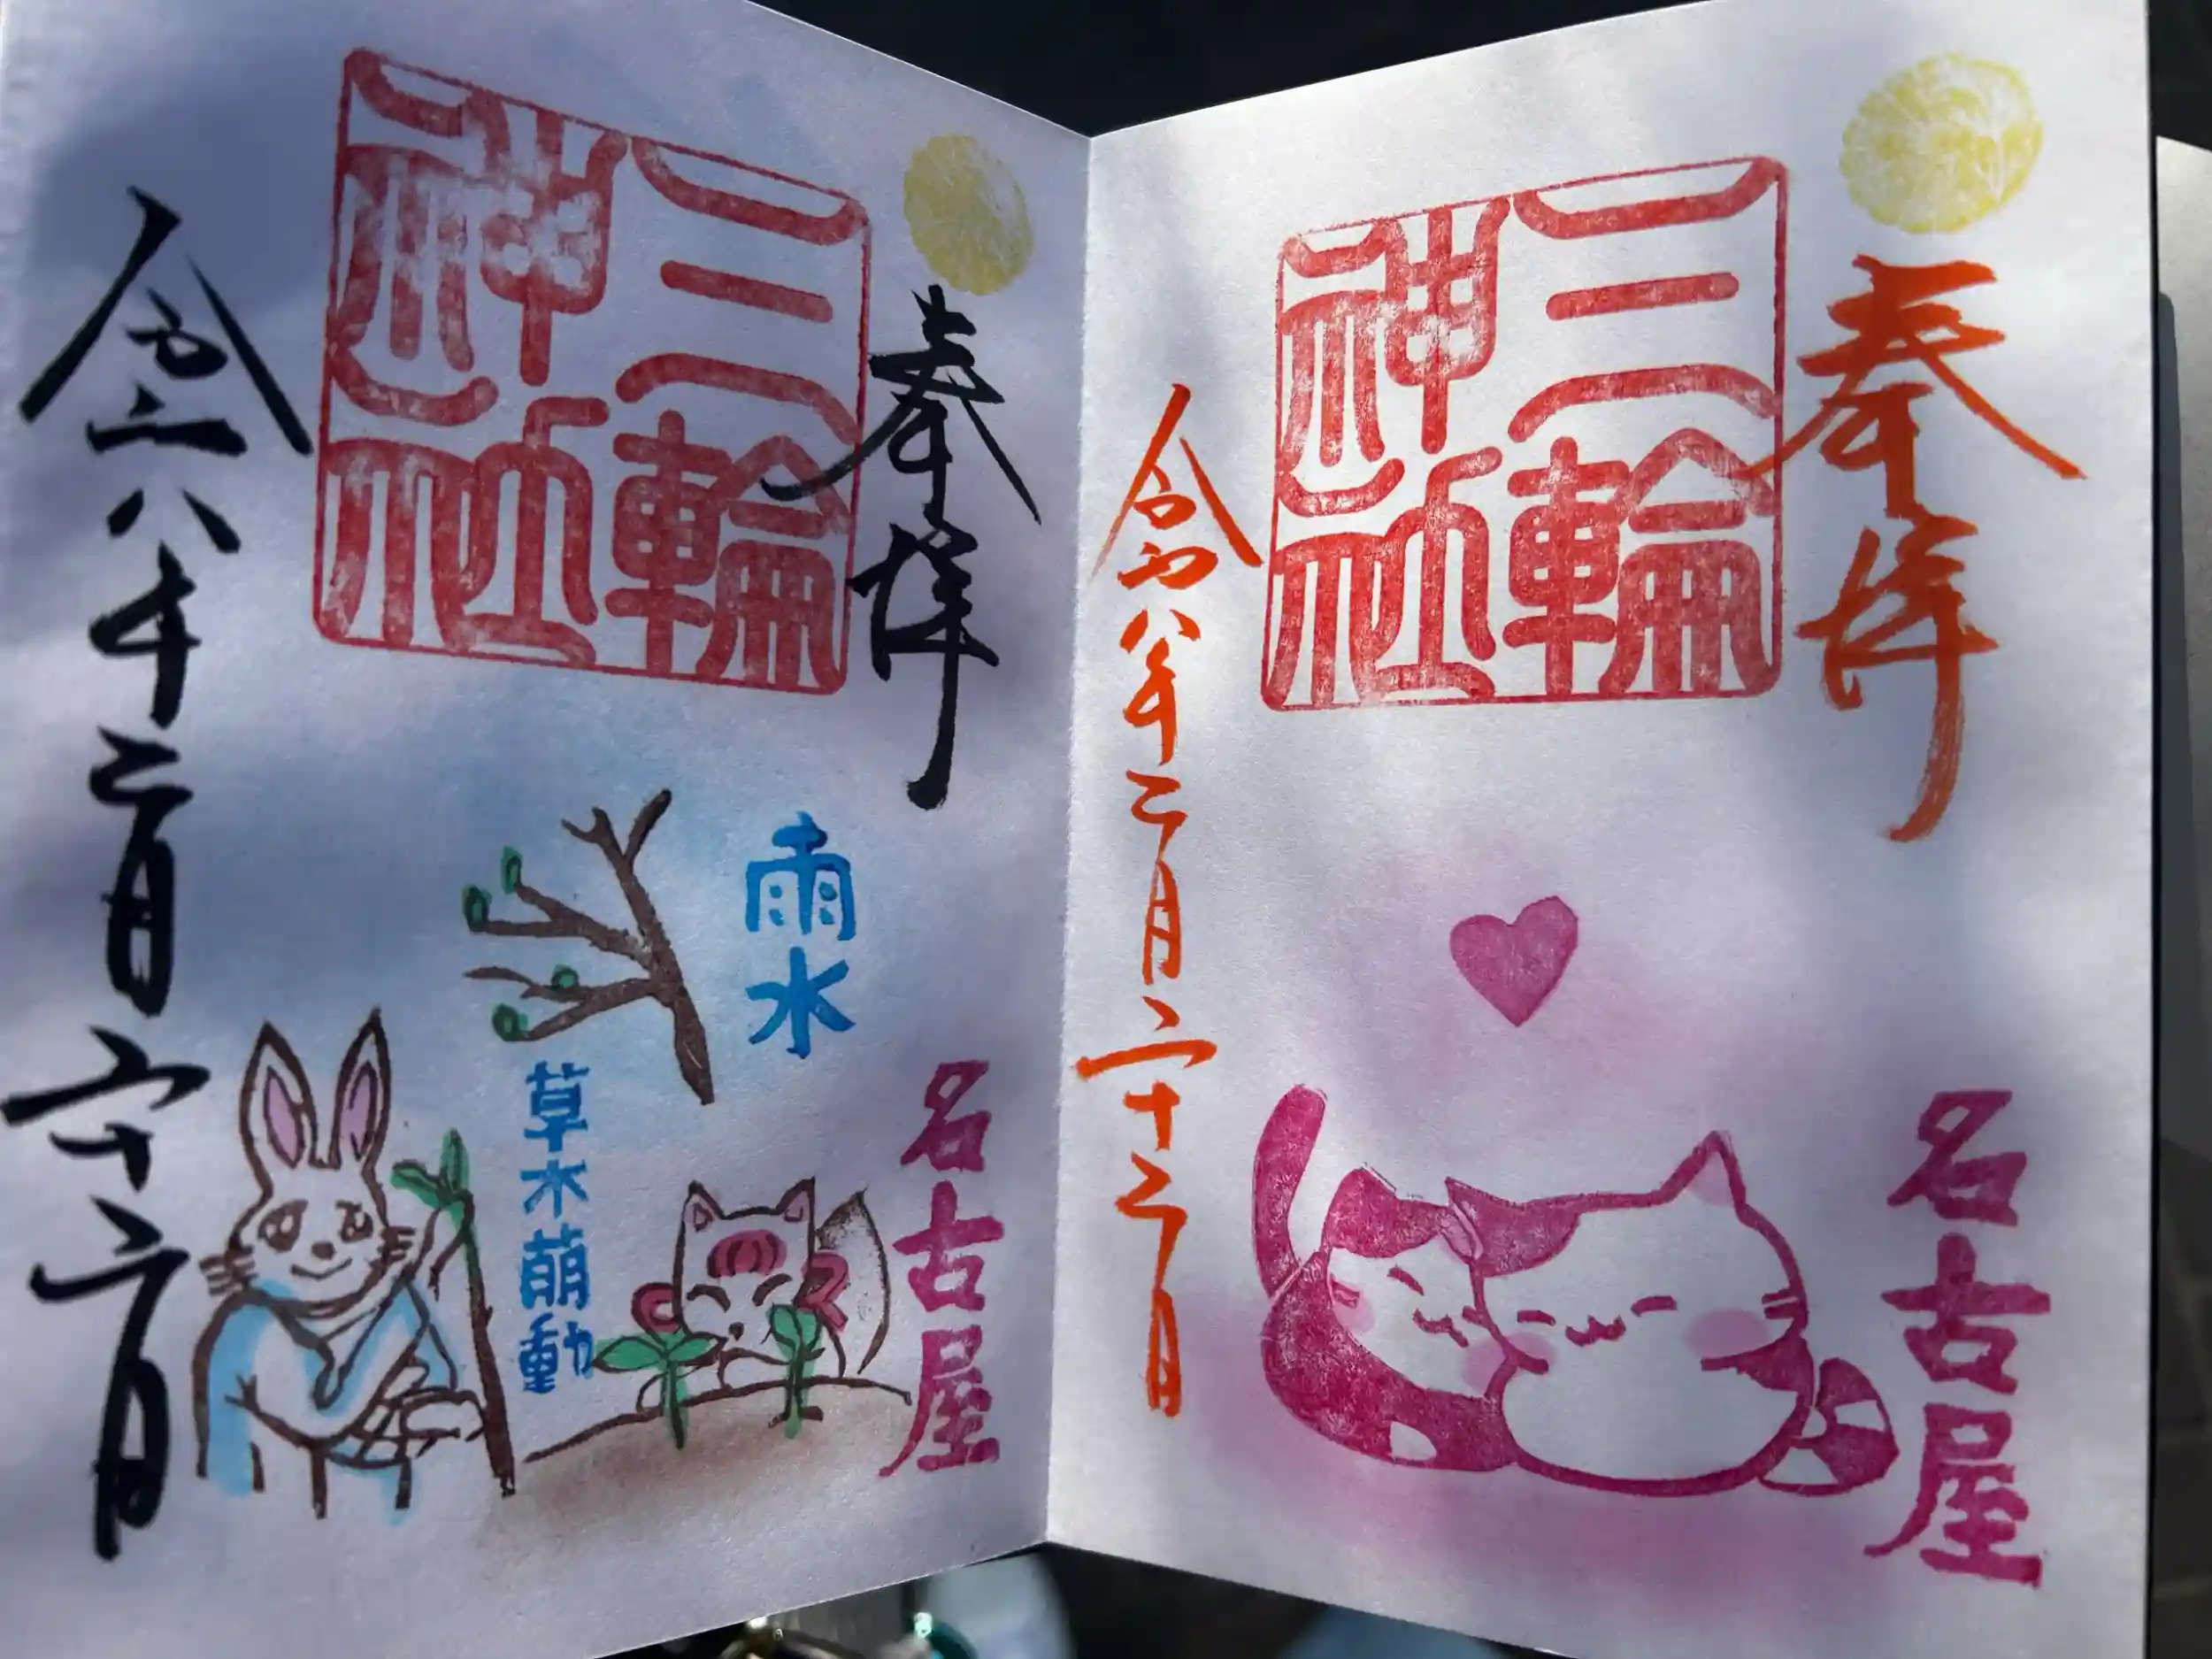 奉拝
名古屋
三輪
神社
令和八年二月二十二日
奉拝
名古屋
三輪
神社
雨水
草木萌動
令和八年二月二十二日